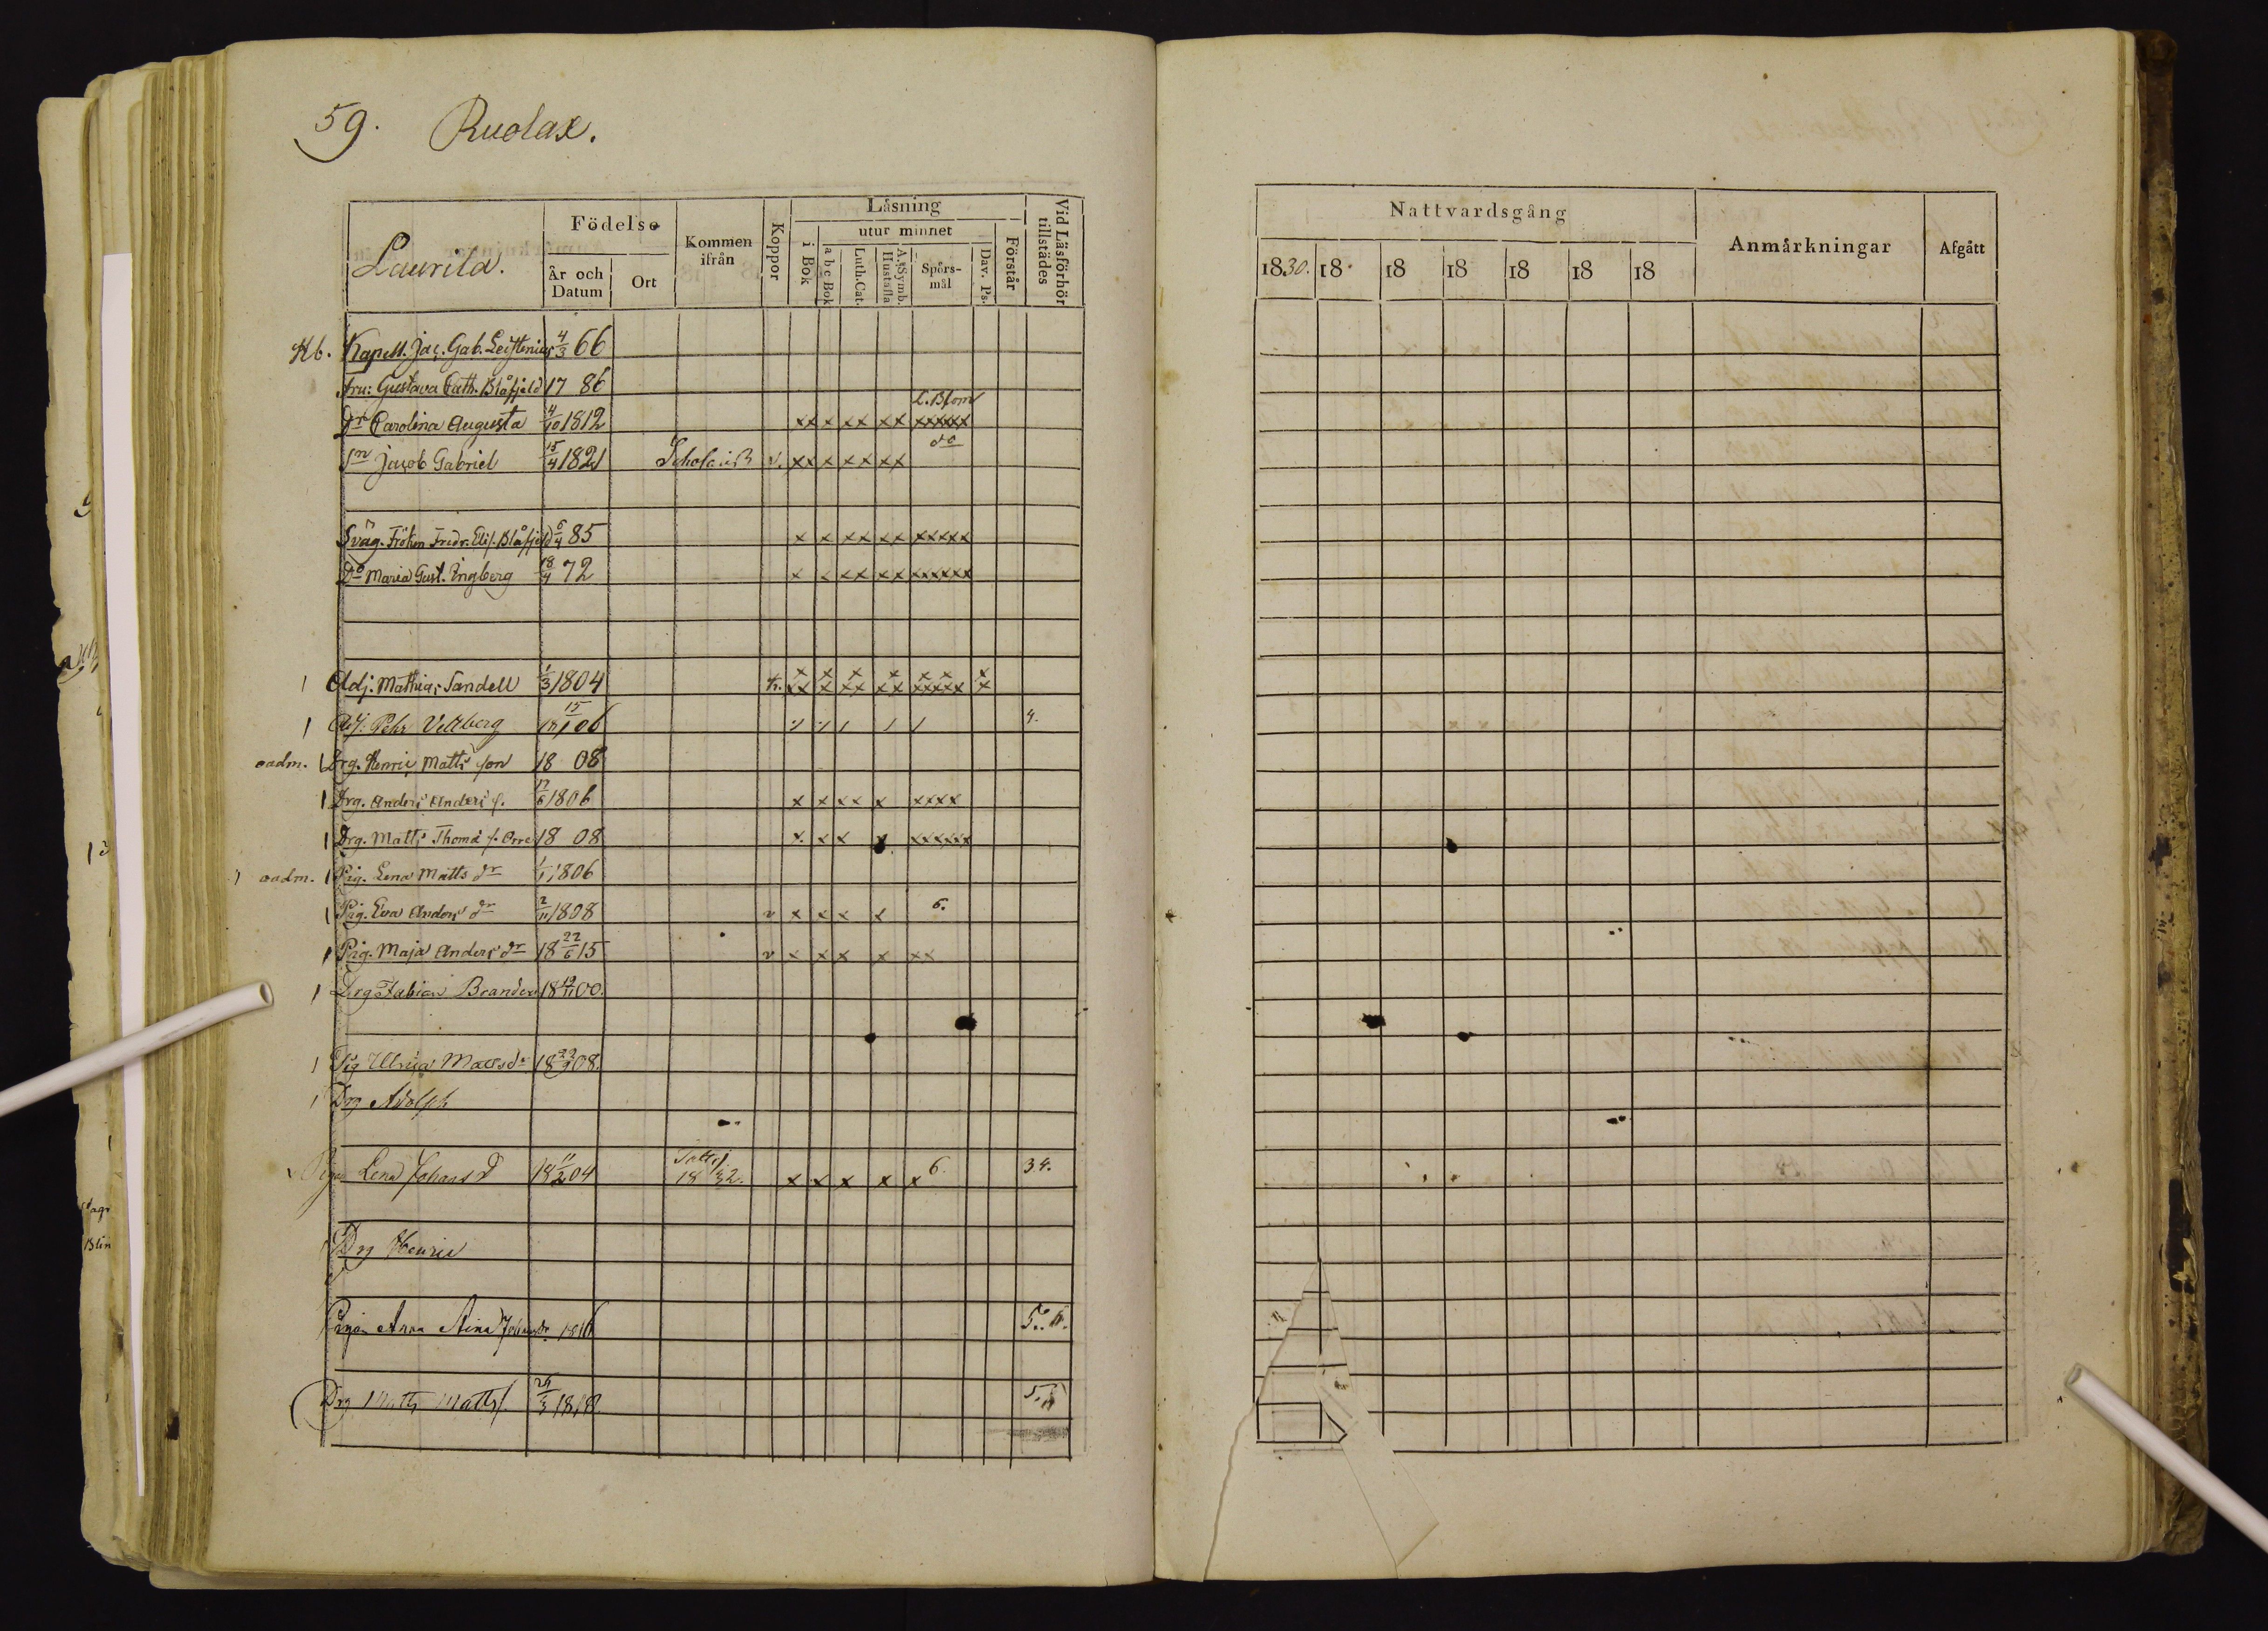 59. Ruolax.
Laurila.
Födelse
År och Datum
Ort
Kommen ifrån
Koppor
Läsning
i Bok
utur minnet
a b c Bok
Luth. Cat.
A. Symb. Hustafla
Spörs-mål
Dav. Ps.
Förstår
Vid Läsförhör tillstädes
Kb. Kapell. Jac. Gab. Leistenius 4/3 66
Fru: Gustava Cath. Blåfjeld 17 86
L. Blom
Dr Carolina Augusta 4/10 1812 xx x xx xx xxxxxx
do
Sn Jacob Gabriel 15/4 1821 v. xx x xx xx
Sväg. Fröken Fredr. Elis. Blåfjeld 6/4 85 x x xx xx xxxxx
Do Maria Gust. Engberg 18/4 72 x x xx xx xxxxxx
Adj. Mathias Sandell 1/3 1804
Adj. Pehr Vellberg 18 15/1 06 4.
oadm. Drg. Henric Matts son 18 08
Drg. Anders Anders s. 17/6 1806 x x xx x xxxx
Drg. Matts Thomas s. Orre 18 08 x x x x xxxxxx
oadm. Pig. Lena Matts dr 1/1 1806
Pig. Eva Anders dr 2/11 1808 v x x x x 6.
Pig. Maja Anders dr 18 22/6 15 v x x x x xx
Drg Fabian Brander 18 00.
Pig Ulrica Matts dr 18 23/9 08.
Drg Adolph
Pigan Lena Johans d 18 11/2 04 18 32. x x x x x 6. 34.
Drg Henric
Pigan Anna Stina Johansdr. 1816 5. 6.
Drg Matts Matts s. 29/3 1818 5. 6
Nattvardsgång
1830. 18 18 18 18 18 18
Anmärkningar
Afgått